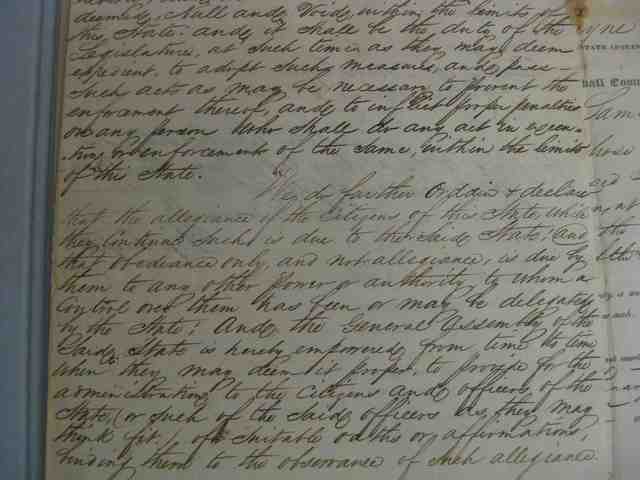 deemed, Null and Void, within the limits of
this State: and it shall be the duty of the
Legislature, at such time as they may deem
expedient, to adopt such measures, and pass
such acts as may be necessary to prevent the
enforcement thereof, and to inflict proper penalties
on any person who shall do any act in execu-
tion or enforcement of the same, within the limits
of this State.
We, do further Ordain & declare
that the allegiance of the Citizens of this State, while
they continue such is due to the said State; and
that obedience only, and not allegiance, is due by
them to any other power or authority, to whom a
Control over them has been or may be delegated
by the State; And the General Assembly of the
Said State is hereby empowered from time to time
when they may deem it proper, to provide for the
administration to the Citizens and officers of the
State, (or such of the said officers as, they may
think fit,) of suitable oaths or affirmations,
binding them to the observance of such allegiance